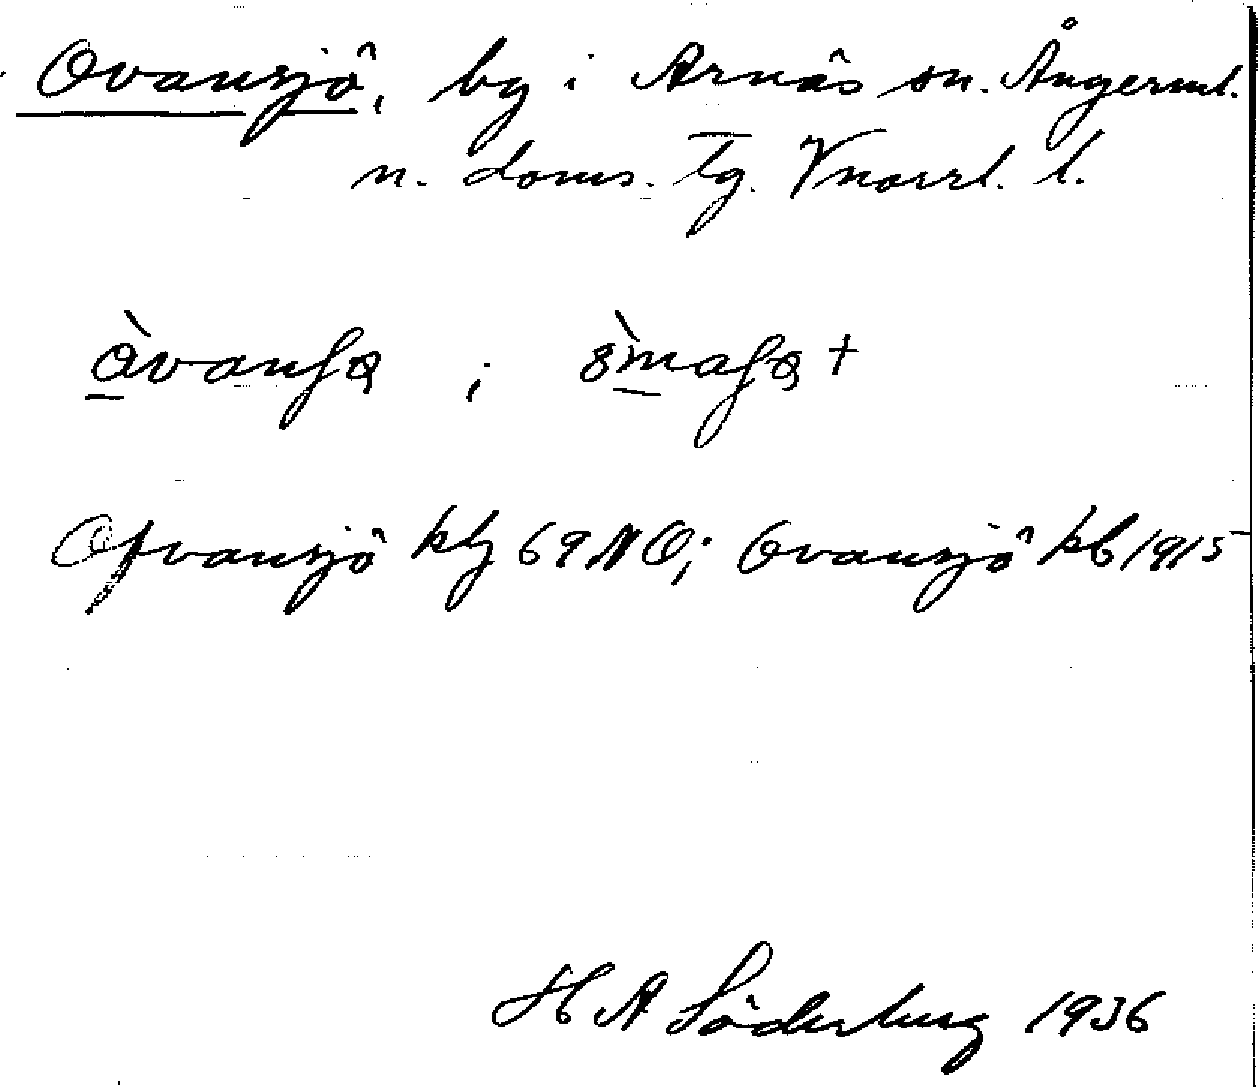 Ovansjö, by i Arnäs sn. Ångerml.
n. doms. tg. Vnorrl. l.
Ofvansjö ktg 69 NO; Ovansjö kb 1915
H A Söderberg 1936